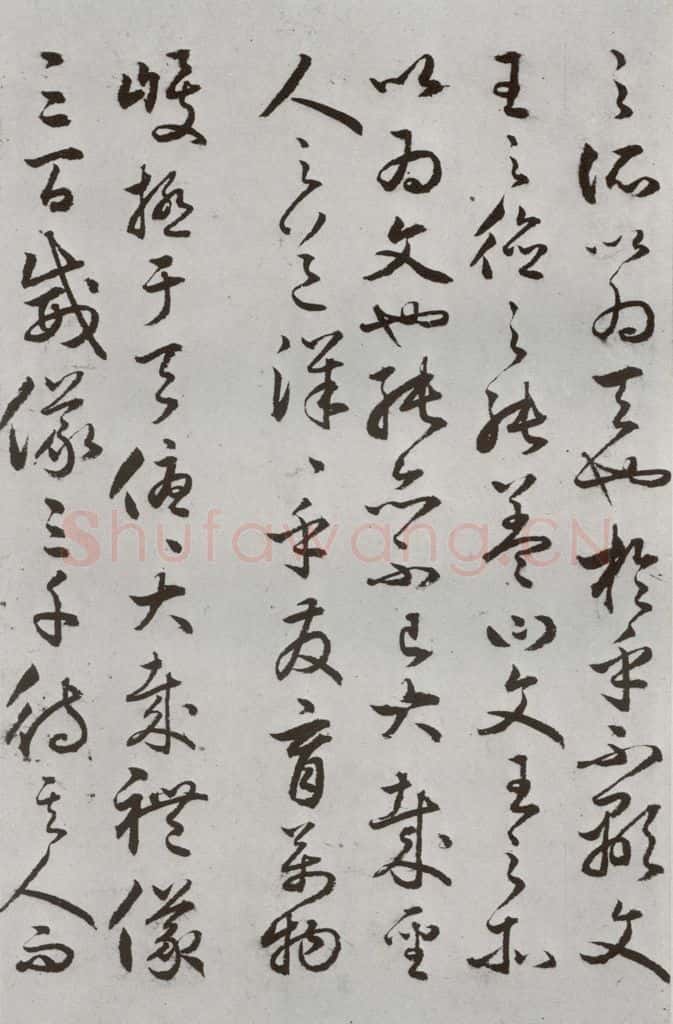 之所以為天也於乎不顯文
王之德之純蓋曰文王之所
以為文也純亦不已大哉聖
人之道洋々乎發育萬物
峻極于天優々大哉禮儀
三百威儀三千待其人而
Shufawang.CN